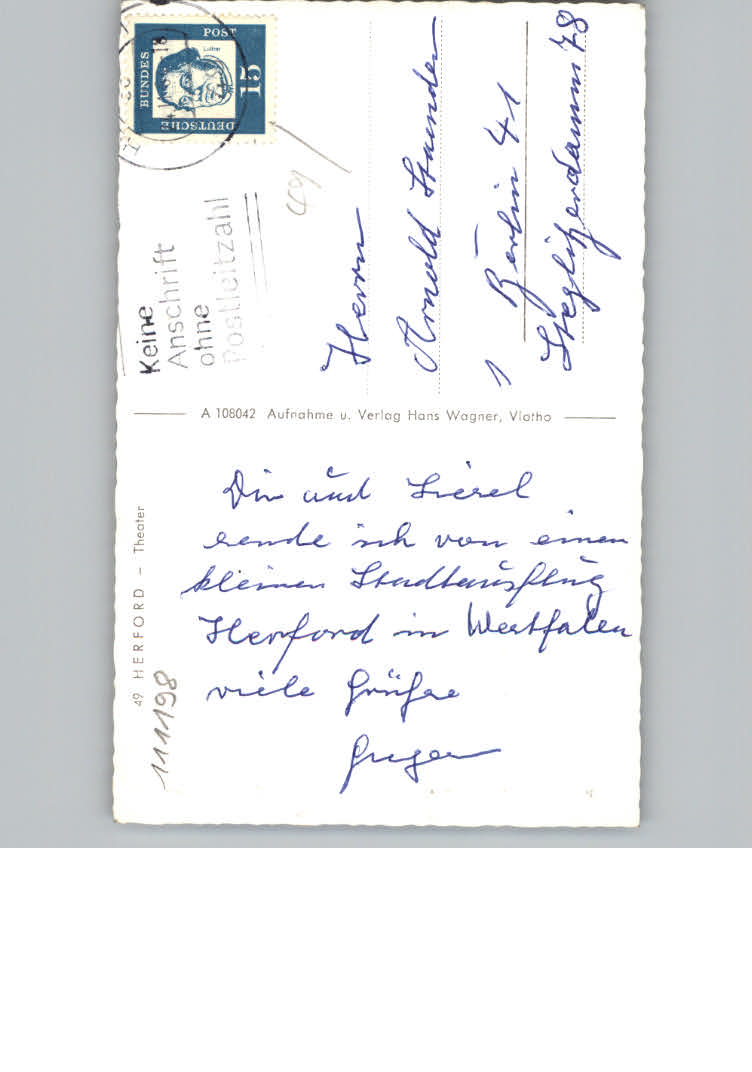 DEUTSCHE
BUNDES
POST
Luther
15
Keine
Anschrift
ohne
Postleitzahl
49
Herrn
Arnold
1 Berlin 41
Steglitzerdamm 78
A 108042 Aufnahme u. Verlag Hans Wagner, Vlotho
49 HERFORD – Theater
111198
Dir und Liesel
sende ich von einem
kleinen Stadtausflug
Herford in Westfalen
viele Grüße